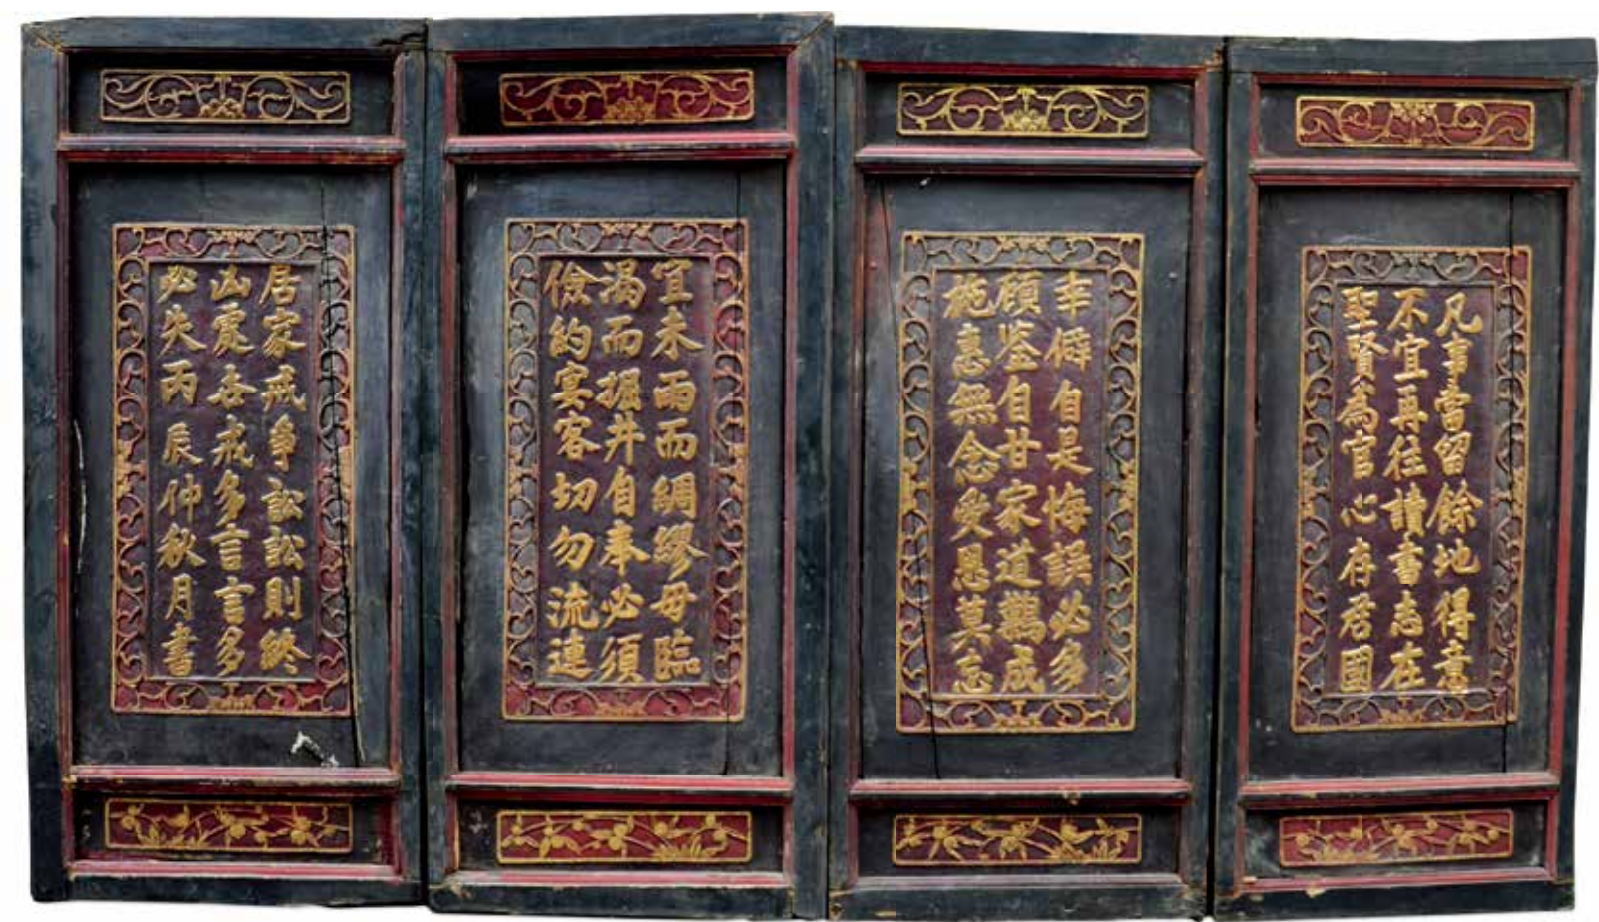 凡事當留餘地得意
不宜再往讀書志在
聖賢為官心存君國
幸僻自是悔誤必多
顧鉴自甘家道難成
施惠無念受恩莫忘
宜未雨而綢繆毋臨
渴而掘井自奉必須
儉約宴客切勿流連
居家戒爭訟訟則終
凶處世戒多言言多
必失丙辰仲秋月書